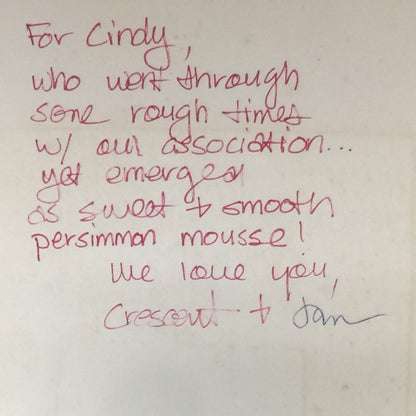 For Cindy,
who went through
some rough times
w/ our association...
yet emerged
as sweet + smooth
persimmon mousse!
We love you,
Crescent + Jan